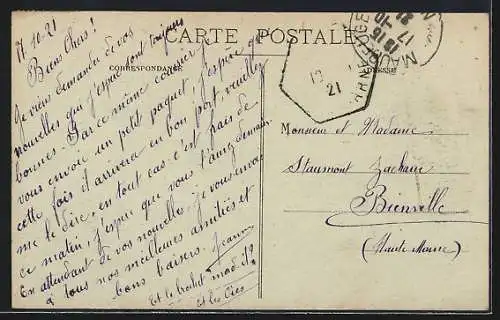 17-10-21
CARTE POSTALE
CORRESPONDANCE
ADRESSE
Biens Chers!
Je viens demander de vos
nouvelles qui j'espère sont toujours
bonnes. Par ce même courrier je
vous envoie un petit paquet, j'espère que
cette fois il arrivera en bon port, veuillez
me le dire, en tout cas c'est frais de
ce matin. J'espère que vous l'aurez demain
En attendant de vos nouvelles, je vous envoie
à tous nos meilleures amitiés et
bons baisers. Jeanne
Et le
et les
MAUBEUGE
17 -10
21
21
Monsieur et Madame
Zacharie
Bienville
(Haute Marne)